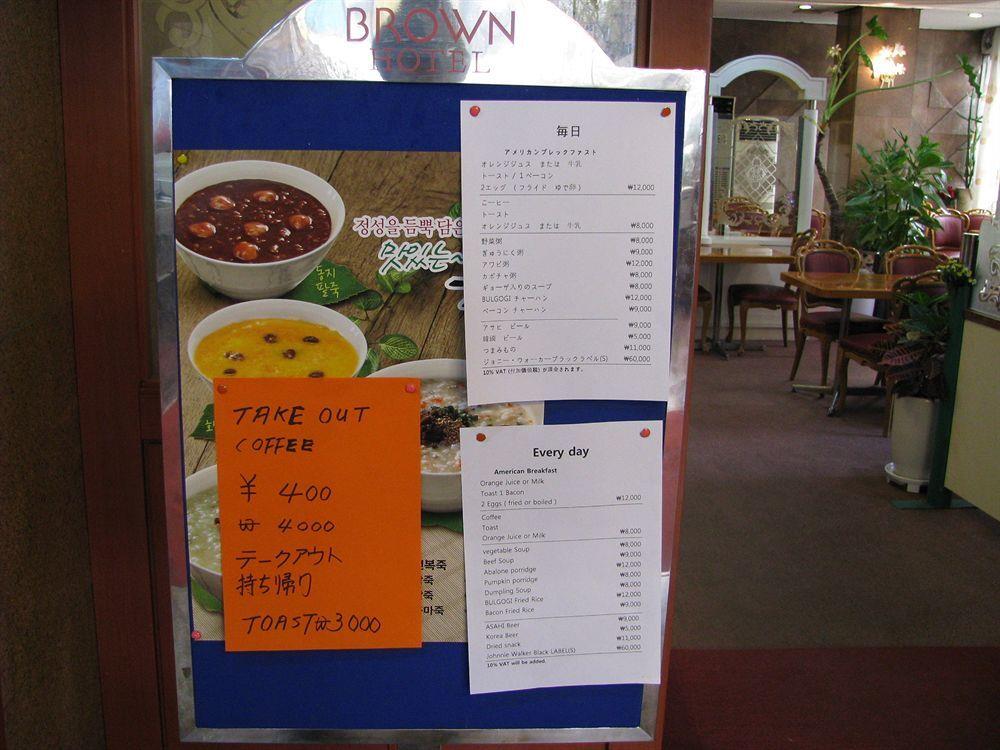 BROWN
HOTEL
정성을 듬뿍 담은
맛있는
동지
팥죽
毎日
アメリカンブレックファスト
オレンジジュス または 牛乳
トースト / 1 ベーコン
2エッグ (フライド ゆで卵) ₩12,000
コーヒー
トースト
オレンジジュス または 牛乳 ₩8,000
野菜粥 ₩8,000
ぎゅうにく粥 ₩9,000
アワビ粥 ₩12,000
カボチャ粥 ₩8,000
ギョーザ入りのスープ ₩8,000
BULGOGI チャーハン ₩12,000
ベーコン チャーハン ₩9,000
アサヒ ビール ₩9,000
韓国 ビール ₩5,000
つまみもの ₩11,000
ジョニー・ウォーカーブラックラベル(S) ₩60,000
10% VAT (付加価値税) が課金されます。
TAKE OUT
COFFEE
¥ 400
₩ 4000
テークアウト
持ち帰り
TOAST ₩3000
Every day
American Breakfast
Orange Juice or Milk
Toast 1 Bacon
2 Eggs ( fried or boiled ) ₩12,000
Coffee
Toast
Orange Juice or Milk ₩8,000
vegetable Soup ₩8,000
Beef Soup ₩9,000
Abalone porridge ₩12,000
Pumpkin porridge ₩8,000
Dumpling Soup ₩8,000
BULGOGI Fried Rice ₩12,000
Bacon Fried Rice ₩9,000
ASAHI Beer ₩9,000
Korea Beer ₩5,000
Dried snack ₩11,000
Johnnie Walker Black LABEL(S) ₩60,000
10% VAT will be added.